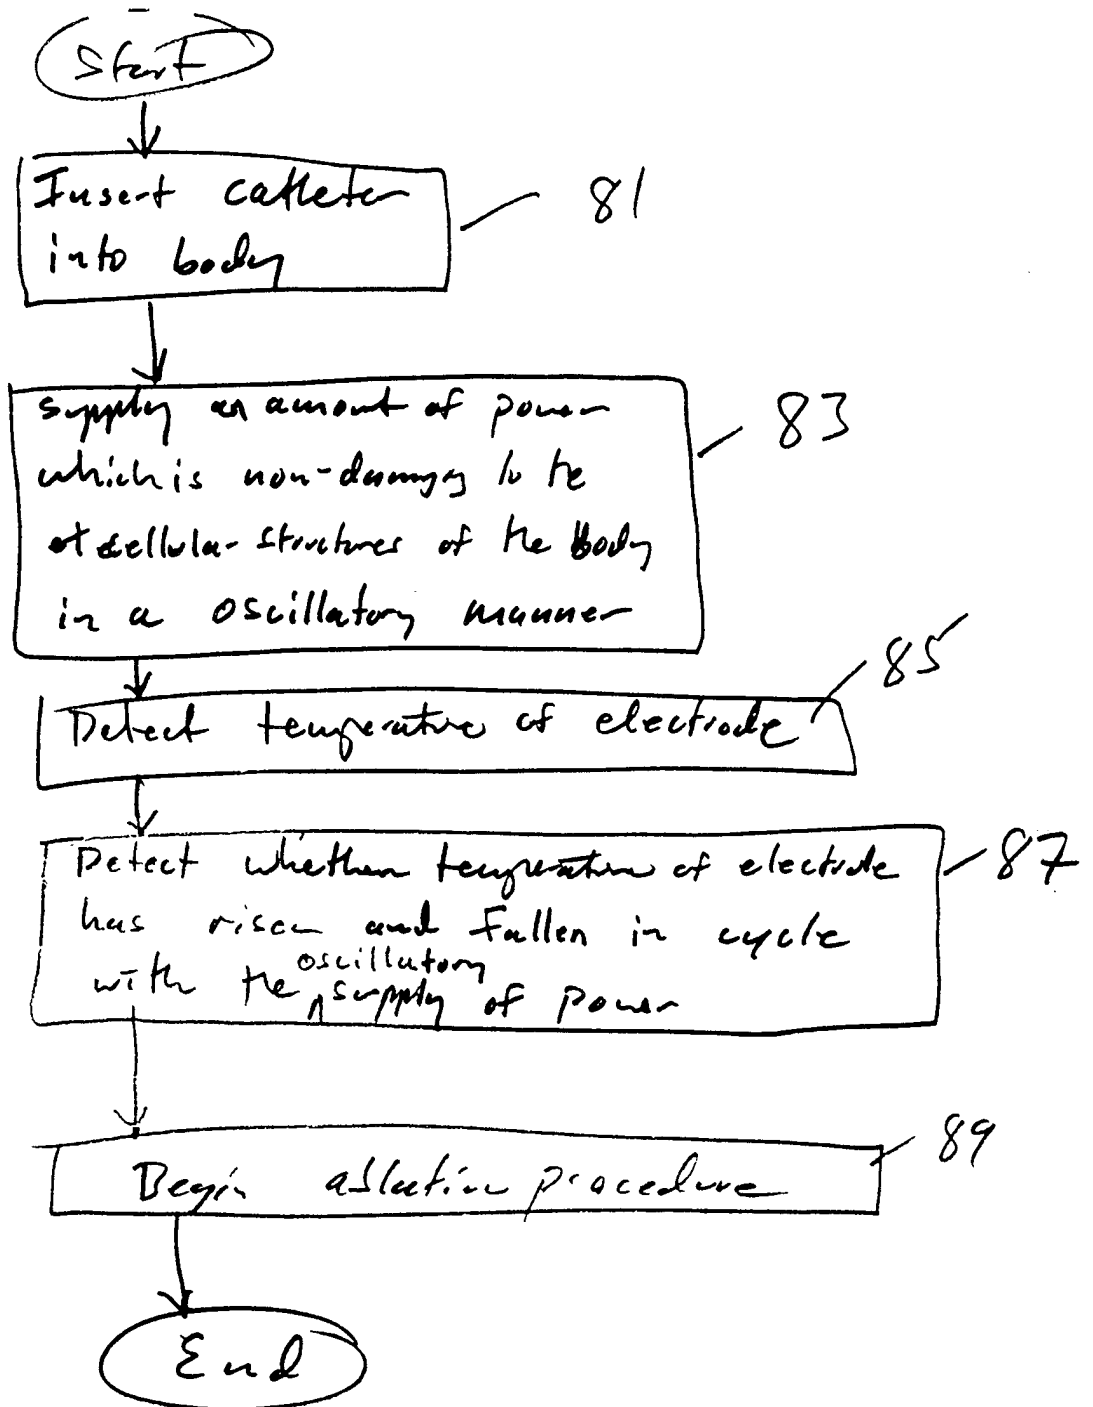 Start
Insert catheter
into body
81
supply an amount of power
which is non-damaging to the
cellular structures of the body
in a oscillatory manner
83
Detect temperature of electrode
85
Detect whether temperature of electrode
has risen and fallen in cycle
with the oscillatory supply of power
87
Begin ablation procedure
89
End